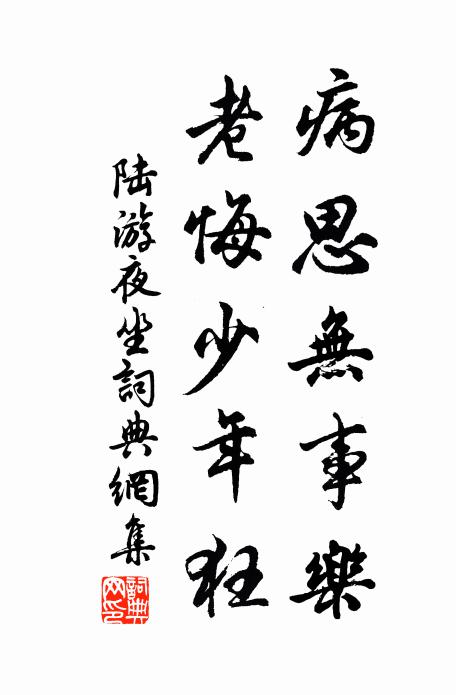 病思無事樂
老悔少年狂
陸游夜坐詞典網集
詞典
网印